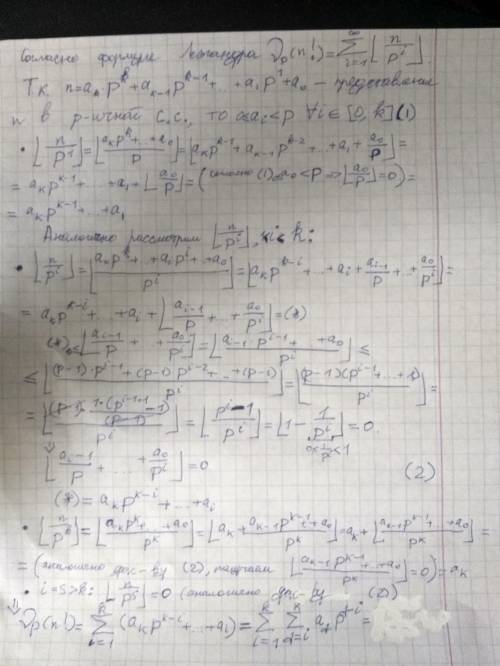 Согласно формуле Лежандра ν_p(n!) = ∑_{i=1}^{∞} ⌊n/p^i⌋.
Т.к. n = a_k·p^k + a_{k-1}p^{k-1} + … + a_1p^1 + a_0 – представление
n в p-ичной с.с., то 0≤a_i<p ∀i∈[0,k] (1)
• ⌊n/p^1⌋ = ⌊(a_kp^k+…+a_0)/p⌋ = ⌊a_kp^{k-1} + a_{k-1}p^{k-2} + … + a_1 + a_0/p⌋ =
= a_kp^{k-1} + … + a_1 + ⌊a_0/p⌋ = (согласно (1) a_0<p ⇒ ⌊a_0/p⌋=0) =
= a_kp^{k-1} + … + a_1
Аналогично рассмотрим ⌊n/p^i⌋, i<k:
• ⌊n/p^i⌋ = ⌊(a_kp^k+…+a_ip^i+…+a_0)/p^i⌋ = ⌊a_kp^{k-i} + … + a_i + a_{i-1}/p + … + a_0/p^i⌋ =
= a_kp^{k-i} + … + a_i + ⌊a_{i-1}/p + … + a_0/p^i⌋ = (*)
⌊a_{i-1}/p + … + a_0/p^i⌋ = ⌊(a_{i-1}p^{i-1} + … + a_0)/p^i⌋ ≤
≤ ⌊((p-1)·p^{i-1} + (p-1)p^{i-2} + … + (p-1))/p^i⌋ = ⌊(p-1)(p^{i-1} + … + 1)/p^i⌋ =
= ⌊((p-1)·1·(p^{i-1+1}-1)/(p-1))/p^i⌋ = ⌊(p^i-1)/p^i⌋ = ⌊1 - 1/p^i⌋ = 0.
0<1/p^i<1
⇓
⌊a_{i-1}/p + … + a_0/p^i⌋ = 0 (2)
(*) = a_kp^{k-i} + … + a_i
• ⌊n/p^k⌋ = ⌊(a_kp^k+…+a_0)/p^k⌋ = ⌊a_k + (a_{k-1}p^{k-1}+…+a_0)/p^k⌋ = a_k + ⌊(a_{k-1}p^{k-1}+…+a_0)/p^k⌋ =
= (аналогично док-ву (2), получаем ⌊(a_{k-1}p^{k-1}+…+a_0)/p^k⌋ = 0) = a_k
• i=s>k: ⌊n/p^s⌋ = 0 (аналогично док-ву (2))
⇓
ν_p(n!) = ∑_{i=1}^{k} (a_kp^{k-i} + … + a_i) = ∑_{i=1}^{k} ∑_{j=i}^{k} a_jp^{j-i} =